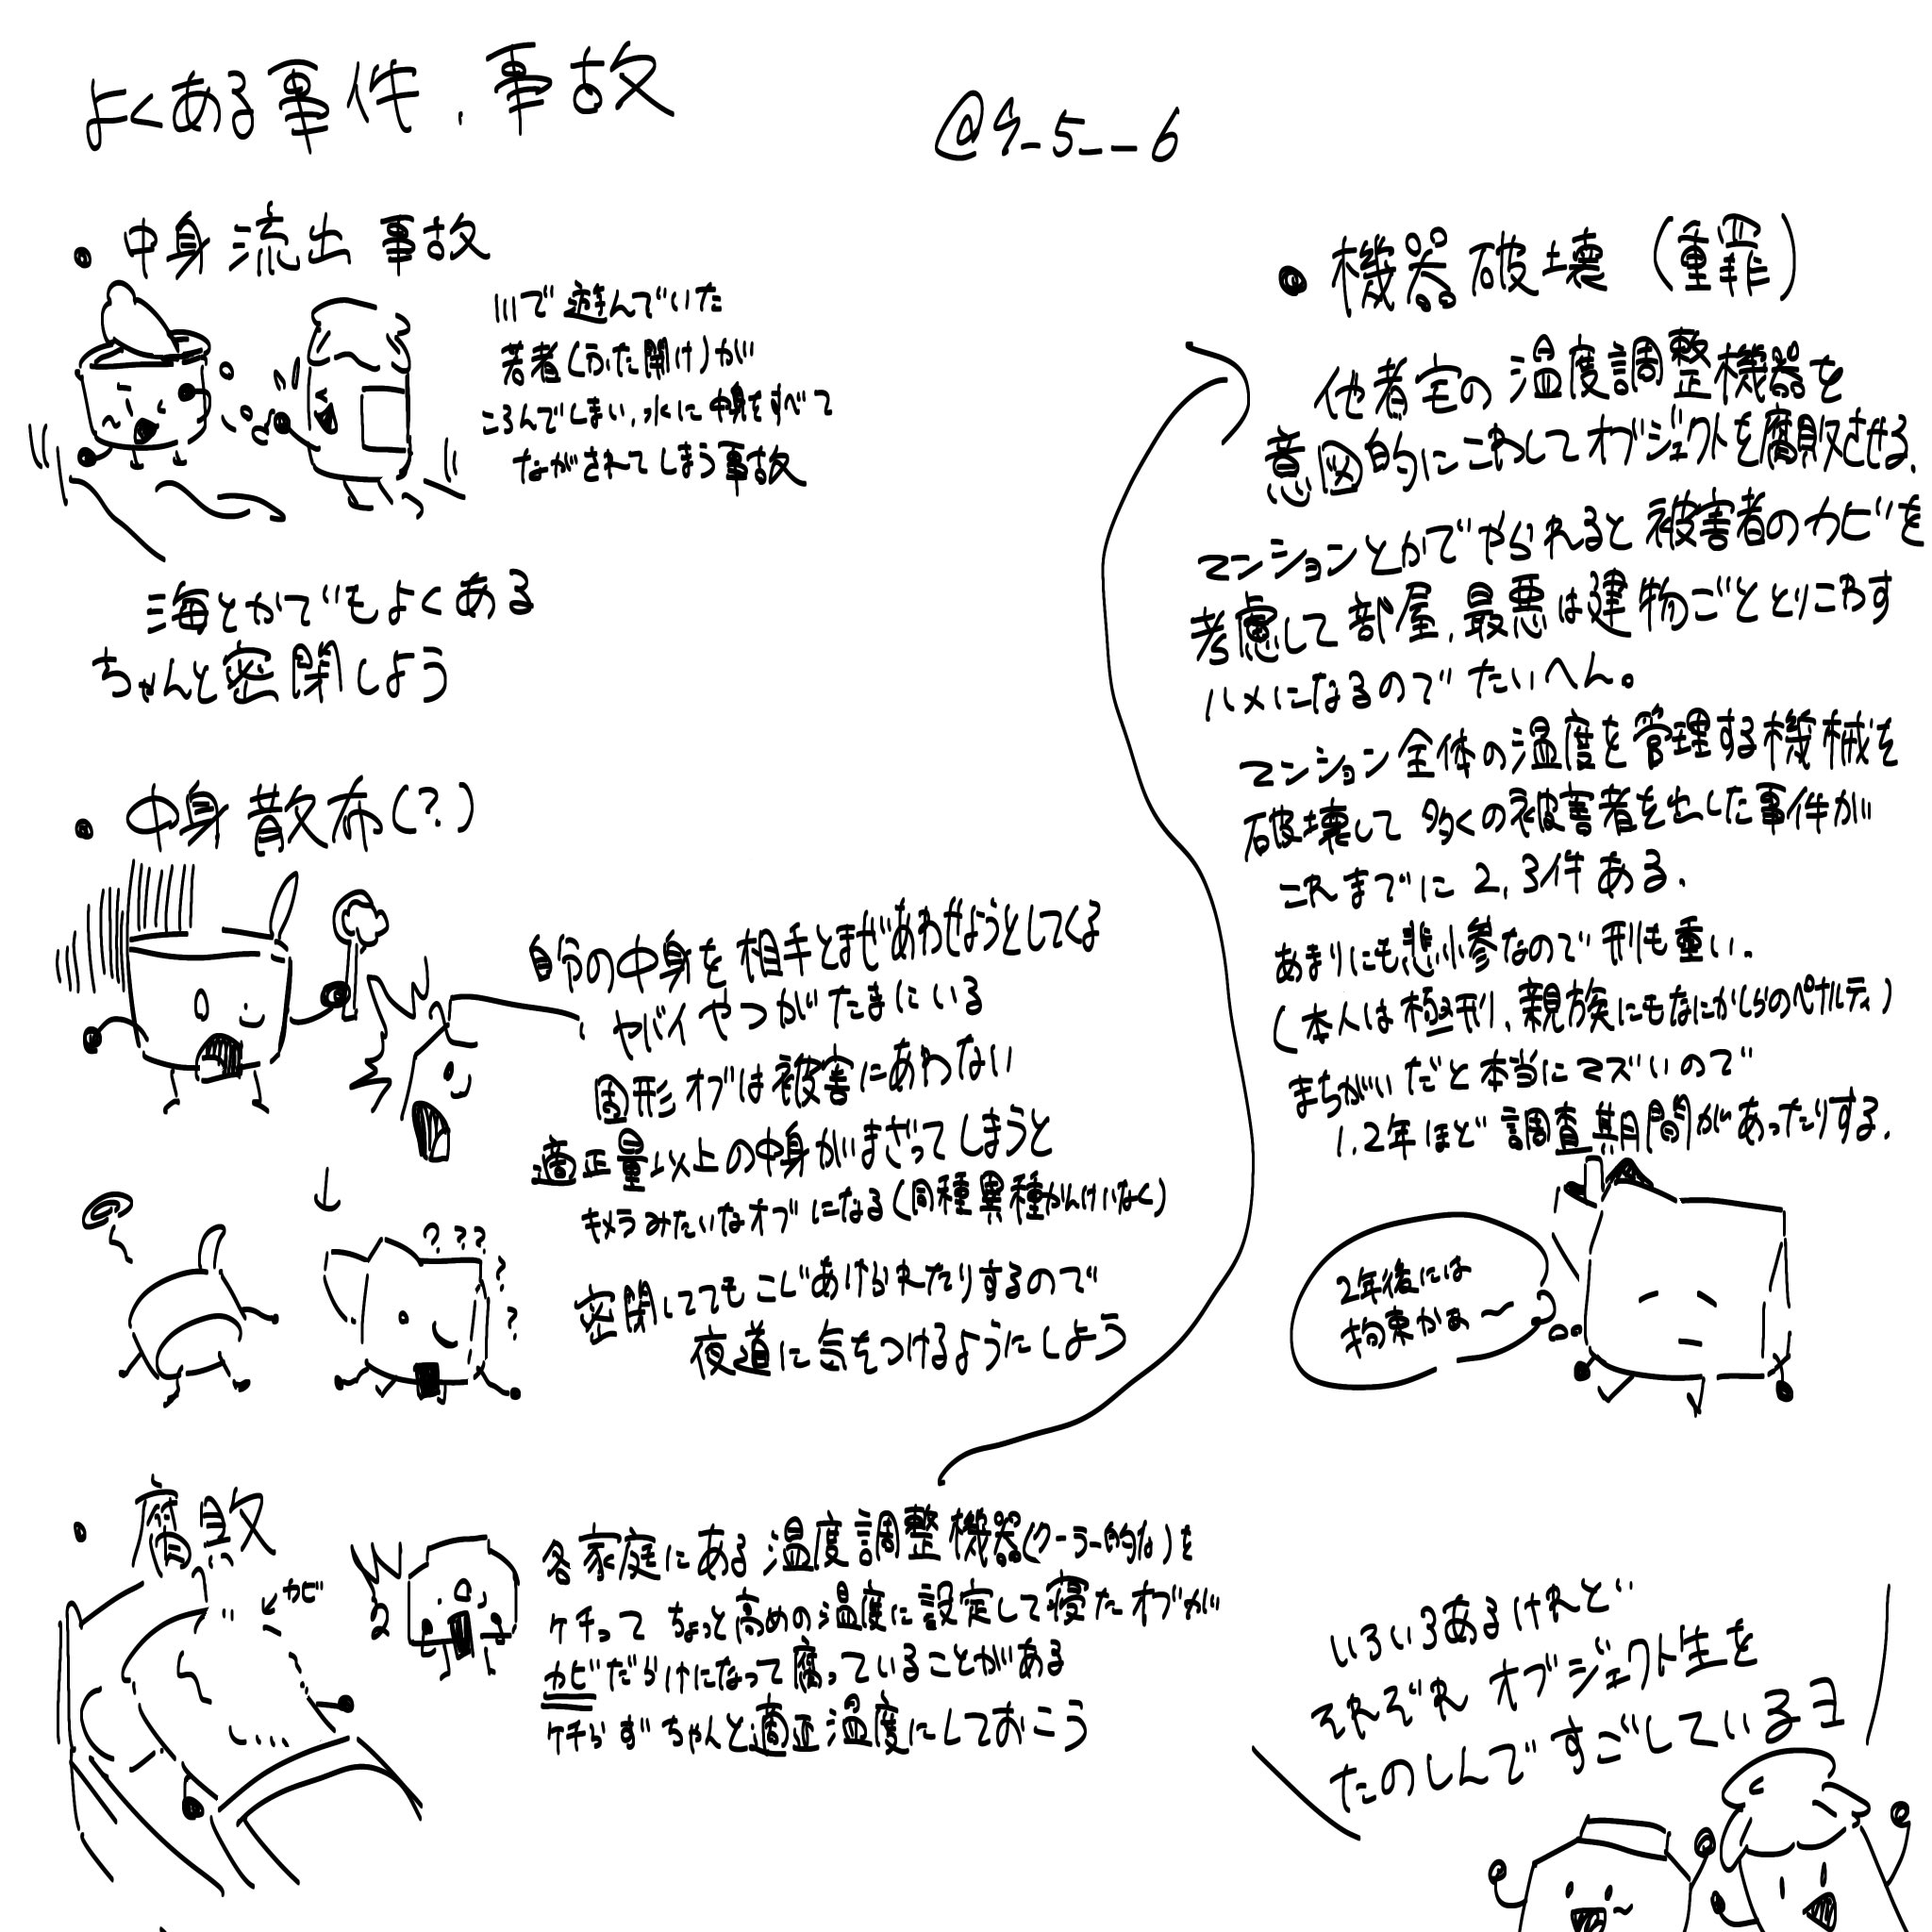 よくある事件、事故
@4_5__6
・中身流出事故
川で遊んでいた
若者(ふた開け)が
ころんでしまい、水に中身をすべて
ながされてしまう事故
海とかでもよくある
ちゃんと密閉しよう
・中身散布(?)
自分の中身を相手とまぜあわせようとしてくる
ヤバイやつがたまにいる
固形オブは被害にあわない
適正量以上の中身がまざってしまうと
キメラみたいなオブになる(同種異種かんけいなく)
密閉しててもこじあけられたりするので
夜道に気をつけるようにしよう
↓
???
?
?
・腐敗
カビ
各家庭にある温度調整機器(クーラー的な)を
ケチってちょっと高めの温度に設定して寝たオブが
カビだらけになって腐っていることがある
ケチらずちゃんと適正温度にしておこう
・機器破壊(重罪)
他者宅の温度調整機器を
意図的にこわしてオブジェクトを腐敗させる、
マンションとかでやられると被害者のカビを
考慮して部屋、最悪は建物ごととりこわす
ハメになるのでたいへん。
マンション全体の温度を管理する機械を
破壊して多くの被害者を出した事件が
これまでに2,3件ある、
あまりにも悲惨なので刑も重い、
(本人は極刑、親族にもなにかしらのペナルティ)
まちがいだと本当にマズいので
1,2年ほど調査期間があったりする、
2年後には
拘束かぁ〜
いろいろあるけれど
それぞれオブジェクト生を
たのしんですごしているヨ